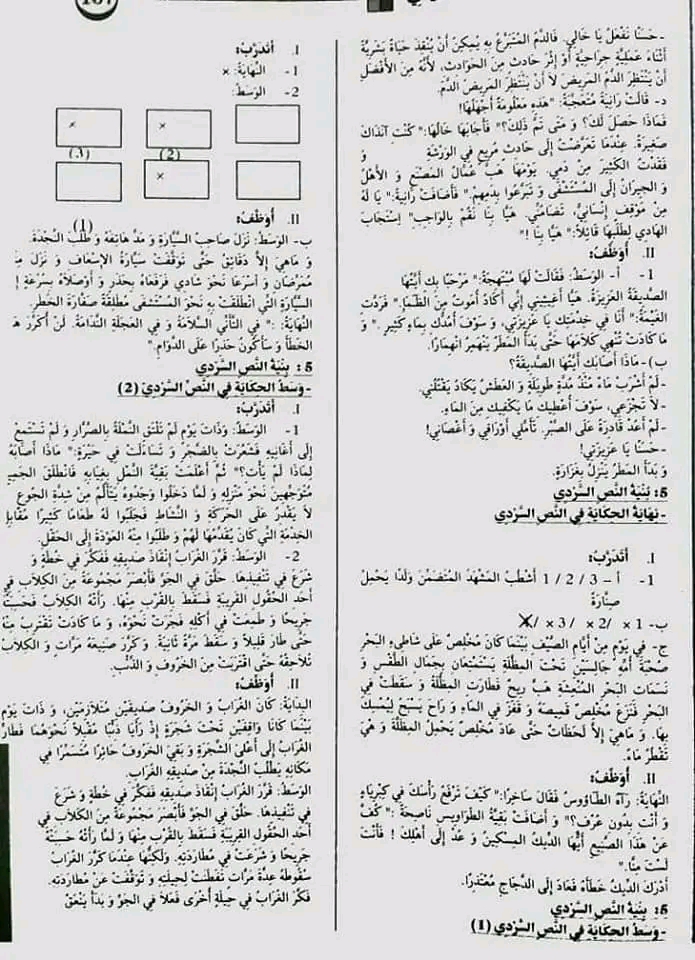 167
-حَسَنًا تَفْعَلُ يَا خَالِي. فَالدَّمُ المُتَبَرَّعُ بِهِ يُمْكِنُ أَنْ يُنْقِذَ حَيَاةً بَشَرِيَّةً
أَثْنَاءَ عَمَلِيَّةٍ جِرَاحِيَّةٍ أَوْ إِثْرَ حَادِثٍ مِنَ الحَوَادِثِ، لِأَنَّهُ مِنَ الأَفْضَلِ
أَنْ يَنْتَظِرَ الدَّمُ المَرِيضَ لَا أَنْ يَنْتَظِرَ المَرِيضُ الدَّمَ.
د- قَالَتْ رَانِيَةُ مُتَعَجِّبَةً: "هَذِهِ مَعْلُومَةٌ أَجْهَلُهَا!
فَمَاذَا حَصَلَ لَكَ؟ وَ مَتَى تَمَّ ذَلِكَ؟" فَأَجَابَهَا خَالُهَا: "كُنْتِ آنَذَاكَ
صَغِيرَةً. عِنْدَمَا تَعَرَّضْتُ إِلَى حَادِثٍ مُرِيعٍ فِي الوَرْشَةِ وَ
فَقَدْتُ الكَثِيرَ مِنْ دَمِي. يَوْمَهَا هَبَّ عُمَّالُ المَصْنَعِ وَ الأَهْلُ
وَ الجِيرَانُ إِلَى المُسْتَشْفَى وَ تَبَرَّعُوا بِدَمِهِمْ." فَأَضَافَتْ رَانِيَةُ: "يَا لَهُ
مِنْ مَوْقِفٍ إِنْسَانِيٍّ، تَضَامُنِيٍّ. هَيَّا بِنَا نَقُمْ بِالوَاجِبِ" اِسْتَجَابَ
الهَادِي لِطَلَبِهَا قَائِلًا: " هَيَّا بِنَا !"
II. أُوَظِّفُ:
1 - أ- الوَسَطُ: فَقَالَتْ لَهَا مُبْتَهِجَةً: " مَرْحَبًا بِكِ أَيَّتُهَا
الصَّدِيقَةُ العَزِيزَةُ. هَيَّا أَغِيثِينِي إِنِّي أَكَادُ أَمُوتُ مِنَ الظَّمَإِ." فَرَدَّتِ
الغَيْمَةُ: " أَنَا فِي خِدْمَتِكِ يَا عَزِيزَتِي، وَ سَوْفَ أَمُدُّكِ بِمَاءٍ كَثِيرٍ ." وَ
مَا كَادَتْ تُنْهِي كَلَامَهَا حَتَّى بَدَأَ المَطَرُ يَنْهَمِرُ اِنْهِمَارًا.
ب)- مَاذَا أَصَابَكِ أَيَّتُهَا الصَّدِيقَةُ؟
-لَمْ أَشْرَبْ مَاءً مُنْذُ مُدَّةٍ طَوِيلَةٍ وَ العَطَشُ يَكَادُ يَقْتُلُنِي.
-لَا تَجْزَعِي، سَوْفَ أُعْطِيكِ مَا يَكْفِيكِ مِنَ المَاءِ.
-لَمْ أَعُدْ قَادِرَةً عَلَى الصَّبْرِ. تَأَمَّلِي أَوْرَاقِي وَ أَغْصَانِي!
-حَسَنًا يَا عَزِيزَتِي!
وَ بَدَأَ المَطَرُ يَنْزِلُ بِغَزَارَةٍ.
5: بُنْيَةُ النَّصِّ السَّرْدِي
- نِهَايَةُ الحِكَايَةِ فِي النَّصِّ السَّرْدِي
I. أَتَدَرَّبُ:
1- أ – 3 / 2 / 1 أَشْطُبُ المَشْهَدَ المُتَضَمِّنَ وَلَدًا يَحْمِلُ
صِنَّارَةً
ب- 1 × / 2× / 3 × / X
ج- فِي يَوْمٍ مِنْ أَيَّامِ الصَّيْفِ بَيْنَمَا كَانَ مُخْلِصٌ عَلَى شَاطِىءِ البَحْرِ
صُحْبَةَ أُمِّهِ جَالِسَيْنِ تَحْتَ المِظَلَّةِ يَسْتَمْتِعَانِ بِجَمَالِ الطَّقْسِ وَ
نَسَمَاتِ البَحْرِ المُنْعِشَةِ هَبَّ رِيحٌ فَطَارَتِ المِظَلَّةُ وَ سَقَطَتْ فِي
البَحْرِ فَنَزَعَ مُخْلِصٌ قَمِيصَهُ وَ قَفَزَ فِي المَاءِ وَ رَاحَ يَسْبَحُ لِيُمْسِكَ
بِهَا. وَ مَاهِيَ إِلاَّ لَحَظَاتٌ حَتَّى عَادَ مُخْلِصٌ يَحْمِلُ المِظَلَّةَ وَ هِيَ
تَقْطُرُ مَاءً.
II. أُوَظِّفُ:
النِّهَايَةُ: رَآهُ الطَّاؤُوسُ فَقَالَ سَاخِرًا:" كَيْفَ تَرْفَعُ رَأْسَكَ فِي كِبْرِيَاءٍ
وَ أَنْتَ بِدُونِ عُرْفٍ؟" وَ أَضَافَتْ بَقِيَّةُ الطَّوَاوِيسِ نَاصِحَةً :" كُفَّ
عَنْ هَذَا الصَّنِيعِ أَيُّهَا الدِّيكُ المِسْكِينُ وَ عُدْ إِلَى أَهْلِكَ ! فَأَنْتَ
لَسْتَ مِنَّا."
أَدْرَكَ الدِّيكُ خَطَأَهُ فَعَادَ إِلَى الدَّجَاجِ مُعْتَذِرًا.
5: بُنْيَةُ النَّصِّ السَّرْدِي
- وَسَطُ الحِكَايَةِ فِي النَّصِّ السَّرْدِي (1)
I. أَتَدَرَّبُ:
1- النِّهَايَةُ: ×
2- الوَسَطُ:
× ×
(2) (3)
×
(1)
II. أُوَظِّفُ:
ب- الوَسَطُ: نَزَلَ صَاحِبُ السَّيَّارَةِ وَ مَدَّ هَاتِفَهُ وَ طَلَبَ النَّجْدَةَ.
وَ مَاهِيَ إِلاَّ دَقَائِقُ حَتَّى تَوَقَّفَتْ سَيَّارَةُ الإِسْعَافِ وَ نَزَلَ مِنْهَا
مُمَرِّضَانِ وَ أَسْرَعَا نَحْوَ شَادِي فَرَفَعَاهُ بِحَذَرٍ وَ أَوْصَلَاهُ بِسُرْعَةٍ إِلَى
السَّيَّارَةِ الَّتِي انْطَلَقَتْ بِهِ نَحْوَ المُسْتَشْفَى مُطْلِقَةً صَفَّارَةَ الخَطَرِ.
النِّهَايَةُ: :" فِي التَّأَنِّي السَّلَامَةُ وَ فِي العَجَلَةِ النَّدَامَةُ. لَنْ أُكَرِّرَ هَذَا
الخَطَأَ وَ سَأَكُونُ حَذِرًا عَلَى الدَّوَامِ."
5: بِنْيَةُ النَّصِّ السَّرْدِي
-وَسَطُ الحِكَايَةِ فِي النَّصِّ السَّرْدِيّ (2)
I. أَتَدَرَّبُ:
1- الوَسَطُ: وَذَاتَ يَوْمٍ لَمْ تَلْتَقِ النَّمْلَةُ بِالصَّرَّارِ وَ لَمْ تَسْتَمِعْ
إِلَى أَغَانِيهِ فَشَعُرَتْ بِالضَّجَرِ وَ تَسَاءَلَتْ فِي حَيْرَةٍ:" مَاذَا أَصَابَهُ
لِمَاذَا لَمْ يَأْتِ؟" ثُمَّ أَعْلَمَتْ بَقِيَّةَ النَّمْلِ بِغِيَابِهِ فَانْطَلَقَ الجَمِيعُ
مُتَوَجِّهِينَ نَحْوَ مَنْزِلِهِ وَ لَمَّا دَخَلُوا وَجَدُوهُ يَتَأَلَّمُ مِنْ شِدَّةِ الجُوعِ
لَا يَقْدِرُ عَلَى الحَرَكَةِ وَ النَّشَاطِ فَجَلَبُوا لَهُ طَعَامًا كَثِيرًا مُقَابِلَ
الخِدْمَةِ الَّتِي كَانَ يُقَدِّمُهَا لَهُمْ وَ طَلَبُوا مِنْهُ العَوْدَةَ إِلَى الحَقْلِ.
2- الوَسَطُ: قَرَّرَ الغُرَابُ إِنْقَاذَ صَدِيقِهِ فَفَكَّرَ فِي خُطَّةٍ وَ
شَرَعَ فِي تَنْفِيذِهَا. حَلَّقَ فِي الجَوِّ فَأَبْصَرَ مَجْمُوعَةً مِنَ الكِلَابِ فِي
أَحَدِ الحُقُولِ القَرِيبَةِ فَسَقَطَ بِالقُرْبِ مِنْهَا. رَأَتْهُ الكِلَابُ فَحَسِبَتْهُ
جَرِيحًا وَ طَمِعَتْ فِي أَكْلِهِ فَجَرَتْ نَحْوَهُ، وَ مَا كَادَتْ تَقْتَرِبُ مِنْهُ
حَتَّى طَارَ قَلِيلًا وَ سَقَطَ مَرَّةً ثَانِيَةً. وَ كَرَّرَ صَنِيعَهُ مَرَّاتٍ وَ الكِلَابُ
تُلَاحِقُهُ حَتَّى اقْتَرَبَتْ مِنَ الخَرُوفِ وَ الذِّئْبِ.
II. أُوَظِّفُ:
البِدَايَةُ: كَانَ الغُرَابُ وَ الخَرُوفُ صَدِيقَيْنِ مُتَلَازِمَيْنِ، وَ ذَاتَ يَوْمٍ
بَيْنَمَا كَانَا وَاقِفَيْنِ تَحْتَ شَجَرَةٍ إِذْ رَأَيَا ذِئْبًا مُقْبِلًا نَحْوَهُمَا فَطَارَ
الغُرَابُ إِلَى أَعْلَى الشَّجَرَةِ وَ بَقِيَ الخَرُوفُ حَائِرًا مُتَسَمِّرًا فِي
مَكَانِهِ يَطْلُبُ النَّجْدَةَ مِنْ صَدِيقِهِ الغُرَابِ.
الوَسَطُ: قَرَّرَ الغُرَابُ إِنْقَاذَ صَدِيقِهِ فَفَكَّرَ فِي خُطَّةٍ وَ شَرَعَ
فِي تَنْفِيذِهَا. حَلَّقَ فِي الجَوِّ فَأَبْصَرَ مَجْمُوعَةً مِنَ الكِلَابِ فِي
أَحَدِ الحُقُولِ القَرِيبَةِ فَسَقَطَ بِالقُرْبِ مِنْهَا وَ لَمَّا رَأَتْهُ حَسِبَتْهُ
جَرِيحًا وَ شَرَعَتْ فِي مُطَارَدَتِهِ. وَلَكِنَّهَا عِنْدَمَا كَرَّرَ الغُرَابُ
سُقُوطَهُ عِدَّةَ مَرَّاتٍ تَفَطَّنَتْ لِحِيلَتِهِ وَ تَوَقَّفَتْ عَنْ مُطَارَدَتِهِ.
فَكَّرَ الغُرَابُ فِي حِيلَةٍ أُخْرَى فَعَلَا فِي الجَوِّ وَ بَدَأَ يَنْعَقُ